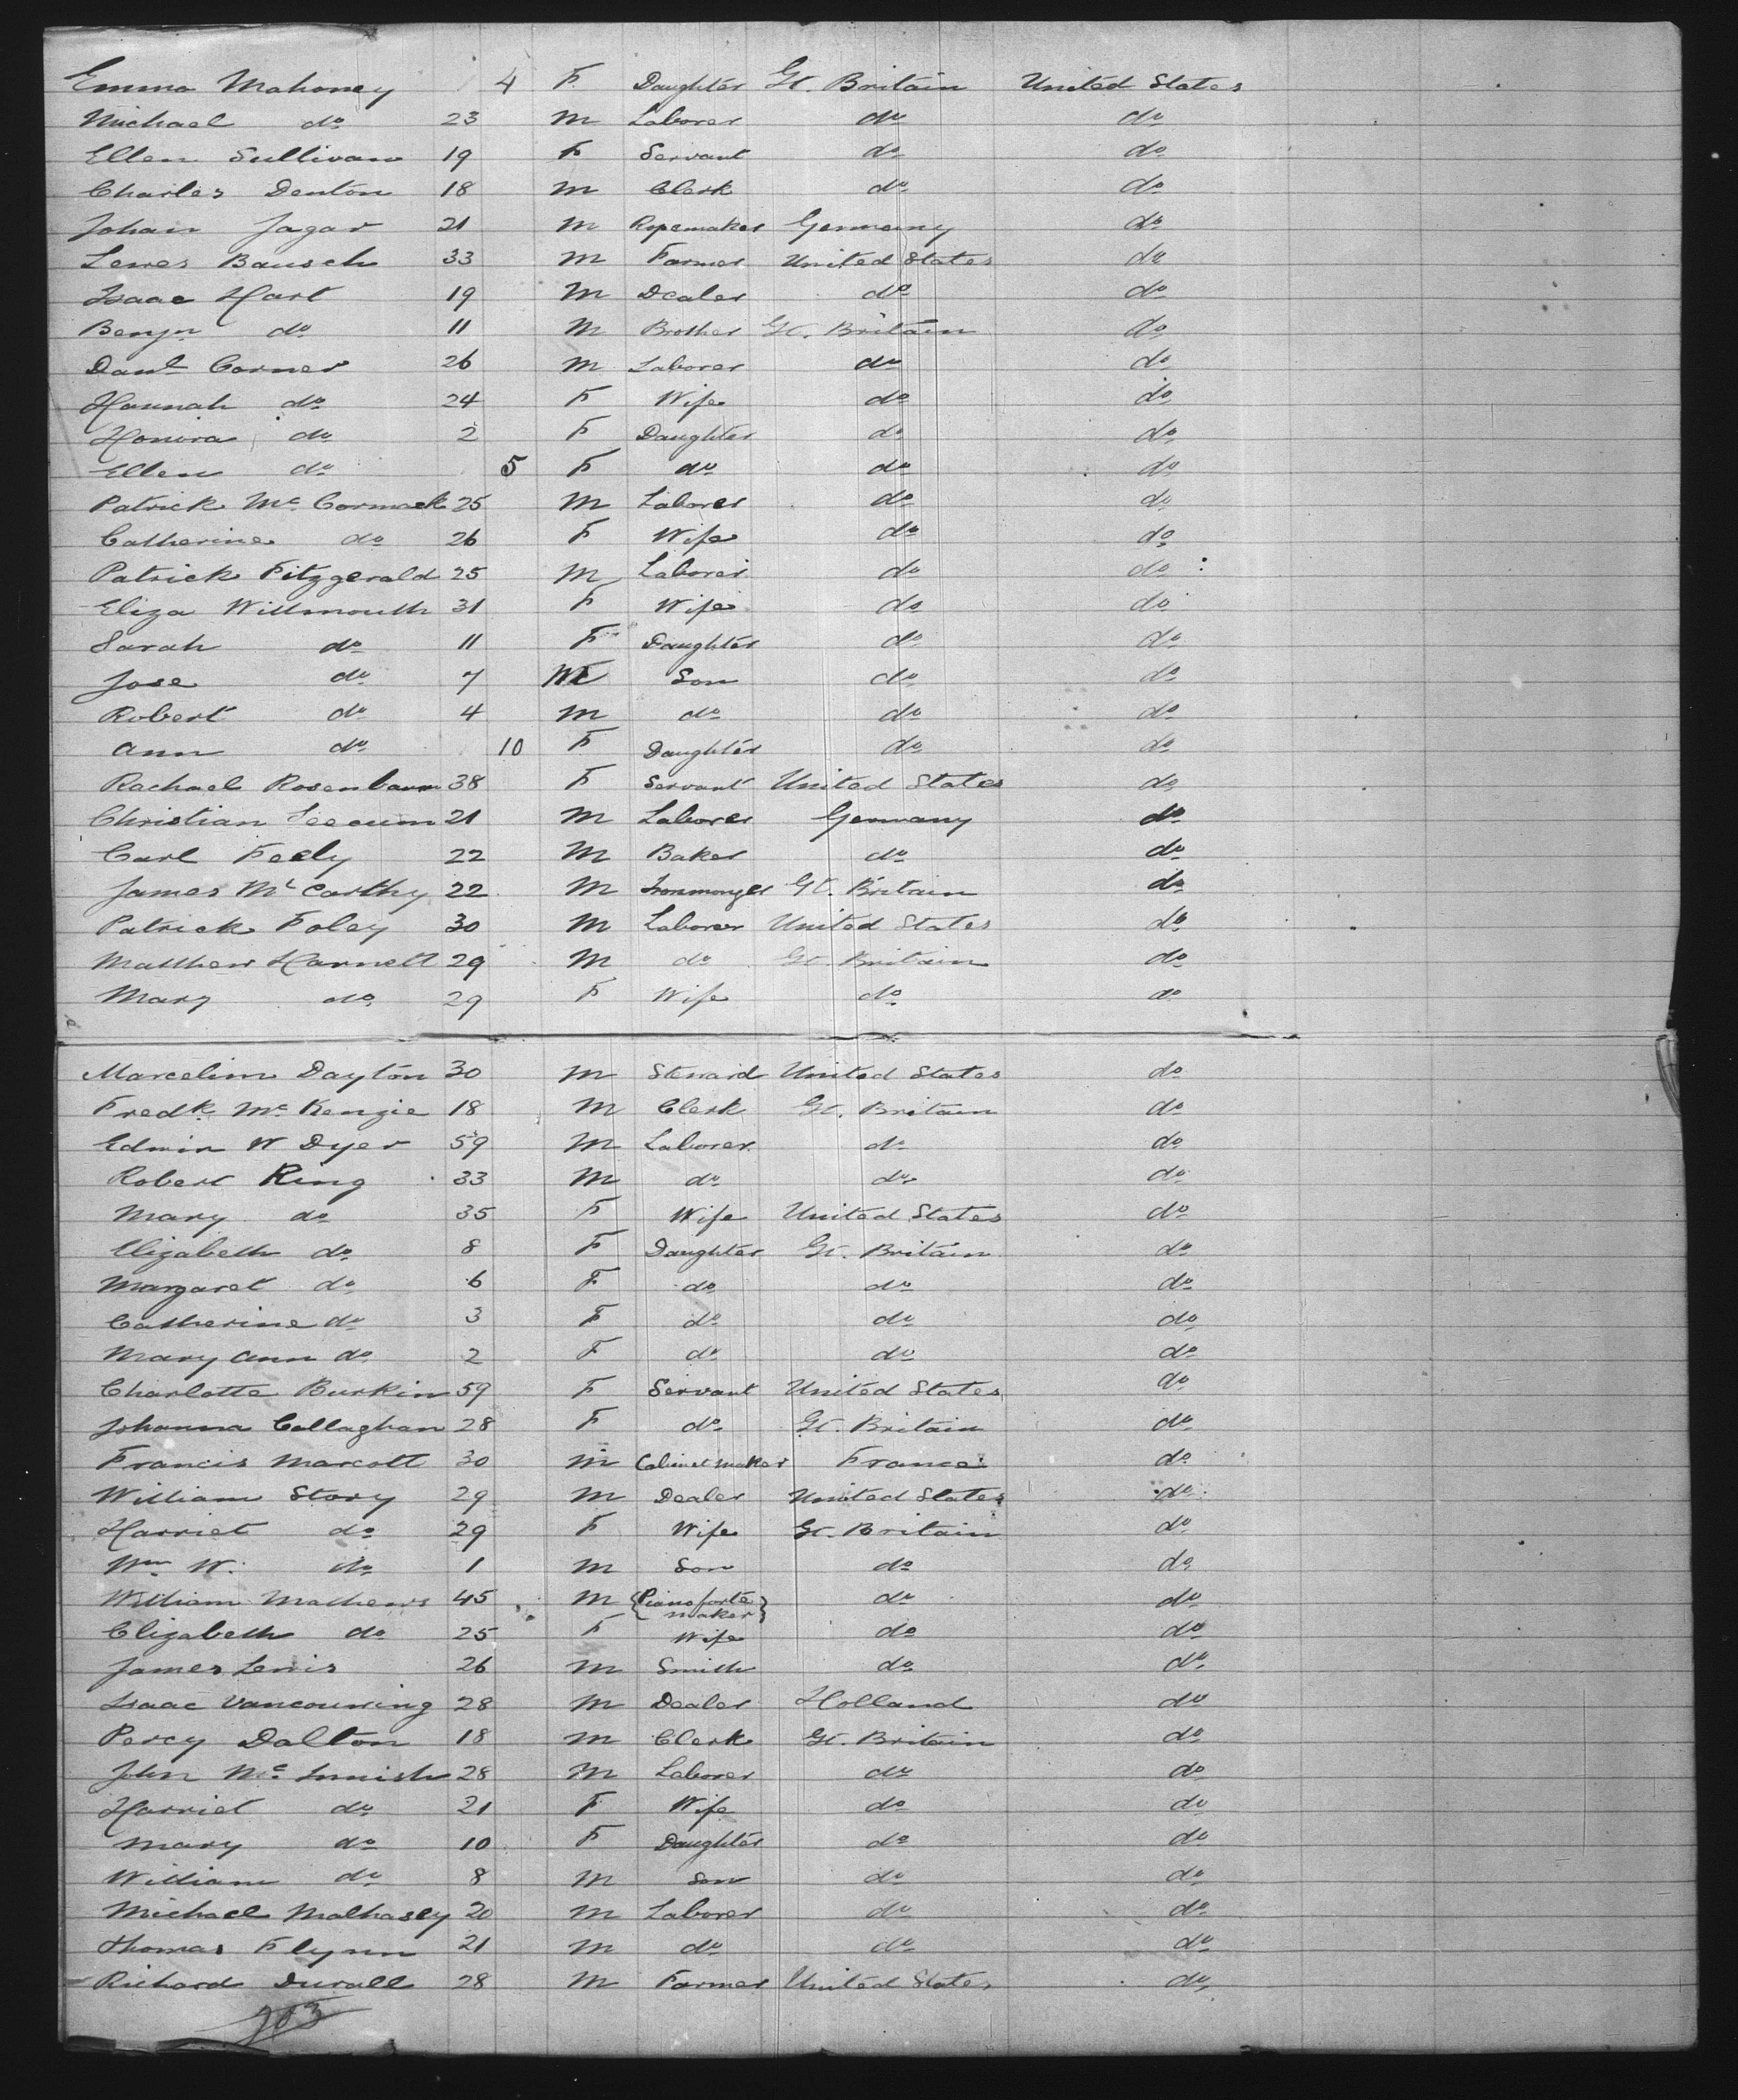 Emma Mahoney 4 F Daughter Gt. Britain United States
Michael do 23 M Laborer do do
Ellen Sullivan 19 F Servant do do
Charles Denton 18 M Clerk do do
Johan Jagar 21 M Ropemaker Germany do
Lewes Bausch 33 M Farmer United States do
Isaac Hart 19 M Dealer do do
Benjn do 11 M Brother Gt. Britain do
Danl Corner 26 M Laborer do do
Hannah do 24 F Wife do do
Honora do 2 F Daughter do do
Ellen do 5 F do do do
Patrick Mc Cormack 25 M Laborer do do
Catherine do 26 F Wife do do
Patrick Fitzgerald 25 M Laborer do do
Eliza Willmouth 31 F Wife do do
Sarah do 11 F Daughter do do
Jose do 7 M Son do do
Robert do 4 M do do do
Ann do 10 F Daughter do do
Rachael Rosenbaum 38 F Servant United States do
Christian 21 M Laborer Germany do
Carl Feely 22 M Baker do do
James McCarthy 22 M Ironmonger Gt. Britain do
Patrick Foley 30 M Laborer United States do
Matthew Harnett 29 M do Gt. Britain do
Mary do 29 F Wife do do
Marcelim Dayton 30 M Steward United States do
Fredk Mc Kenzie 18 M Clerk Gt. Britain do
Edwin W Dyer 59 M Laborer do do
Robert Ring 33 M do do do
Mary do 35 F Wife United States do
Elizabeth do 8 F Daughter Gt. Britain do
Margaret do 6 F do do do
Catherine do 3 F do do do
Mary Ann do 2 F do do do
Charlotte Burkin 59 F Servant United States do
Johanna Callaghan 28 F do Gt. Britain do
Francis Marcott 30 M Cabinetmaker France do
William Story 29 M Dealer United States do
Harriet do 29 F Wife Gt. Britain do
Wm W. do 1 M Son do do
William Mathews 45 M {Pianoforte maker} do do
Elizabeth do 25 F Wife do do
James Lewis 26 M Smith do do
Isaac Vancouwing 28 M Dealer Holland do
Percy Dalton 18 M Clerk Gt. Britain do
John Mc Innish 28 M Laborer do do
Harriet do 21 F Wife do do
Mary do 10 F Daughter do do
William do 8 M Son do do
Michael Malhasey 20 M Laborer do do
Thomas Flynn 21 M do do do
Richard Duvall 28 M Farmer United States do
203